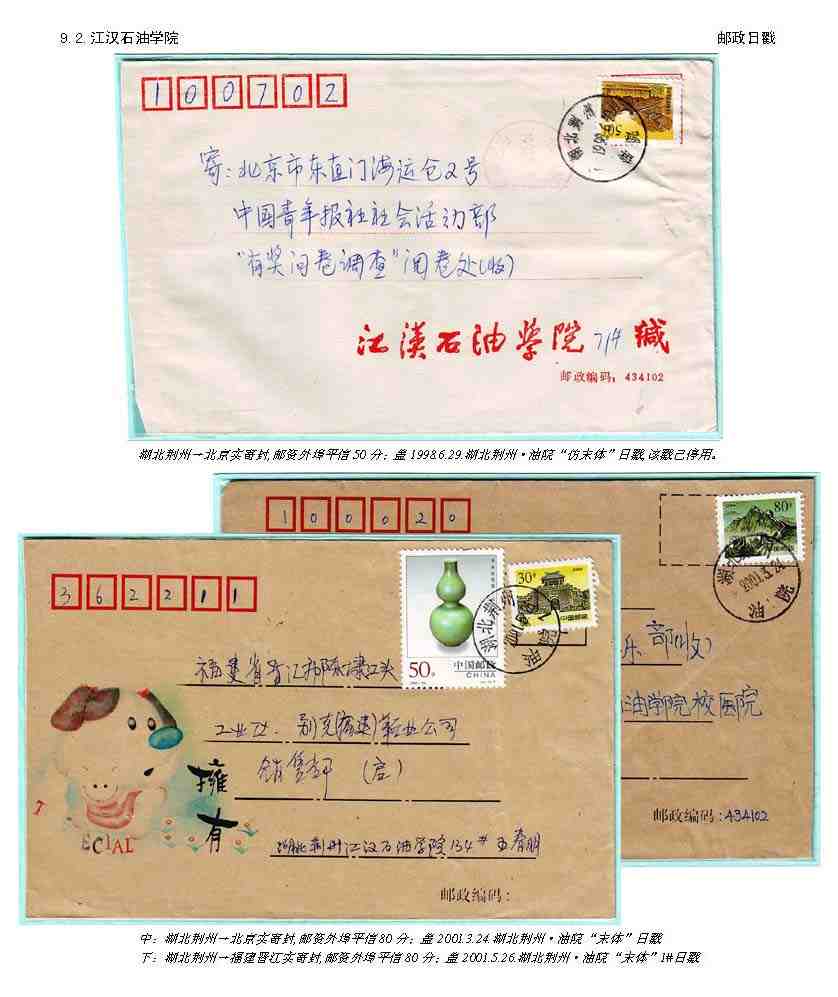 9.2.江汉石油学院 邮政日戳
100702
寄:北京市东直门海运仓2号
中国青年报社社会活动部
“有奖问卷调查”阅卷处(收)
江汉石油学院 71# 缄
邮政编码:434102
湖北荆州
湖北荆州→北京实寄封,邮资外埠平信50分;盖1998.6.29.湖北荆州·油院“仿宋体”日戳,该戳已停用。
100020
80分
乐部(收)
油学院校医院
邮政编码:434102
362211
50分
中国邮政
CHINA
30分
中国邮政
湖北荆州
福建省晋江市陈埭江头
工业区.别克(福建)鞋业公司
擁有
ECIAL
湖北荆州江汉石油学院134#王春明
邮政编码:
中:湖北荆州→北京实寄封,邮资外埠平信80分;盖2001.3.24.湖北荆州·油院“宋体”日戳
下:湖北荆州→福建晋江实寄封,邮资外埠平信80分;盖2001.5.26.湖北荆州·油院“宋体”1#日戳